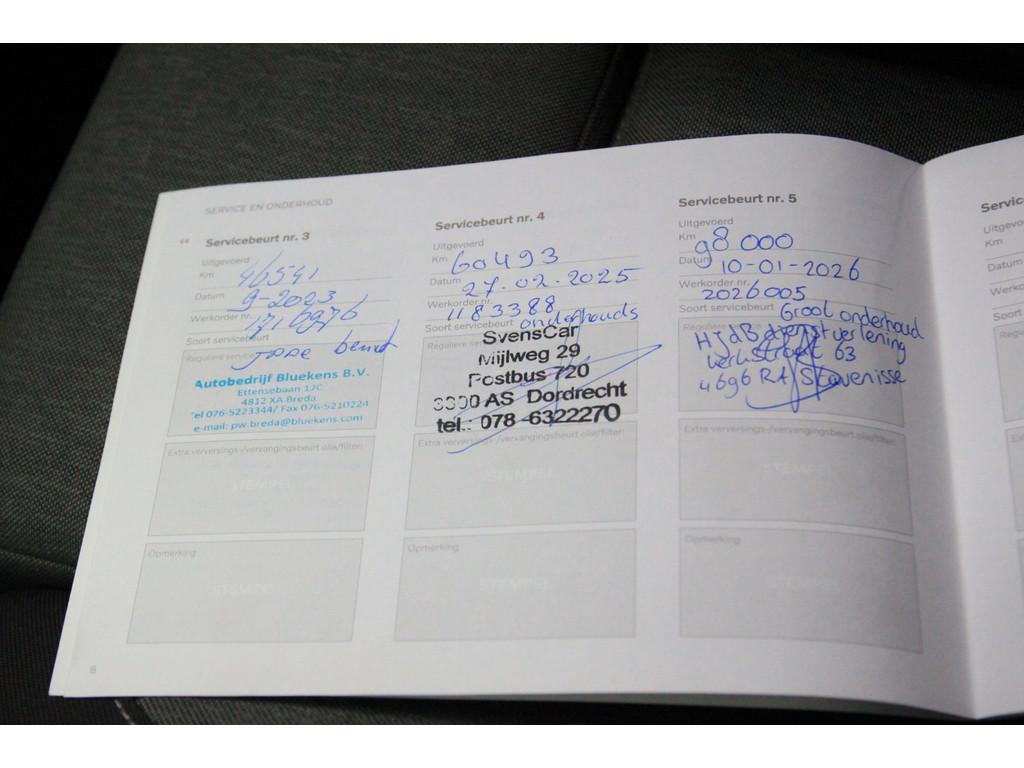 SERVICE EN ONDERHOUD
Servicebeurt nr. 3
Uitgevoerd
Km 46541
Datum 9-2023
Werkorder nr. 1716976
Soort servicebeurt
Reguliere
beurt
Autobedrijf Bluekens B.V.
Ettensebaan 17C
4812 XA Breda
Tel 076-5223344/ Fax 076-5210224
e-mail: pw.breda@bluekens.com
Extra verversings-/vervangingsbeurt olie/filter:
STEMPEL
Opmerking
STEMPEL
8
Servicebeurt nr. 4
Uitgevoerd
Km 60493
Datum 27.02.2025
Werkorder nr. 1183388
Soort servicebeurt onderhouds
Reguliere
SvensCar
Mijlweg 29
Postbus 720
3300 AS Dordrecht
tel.: 078-6322270
Extra verversings-/vervangingsbeurt olie/filter:
STEMPEL
Opmerking
STEMPEL
Servicebeurt nr. 5
Uitgevoerd
Km 98000
Datum 10-01-2026
Werkorder nr.
2026005
Soort servicebeurt Groot onderhoud
Reguliere
HjdB dienstverlening
Kerkstraat 63
4696 RA Stavenisse
Extra verversings-/vervangingsbeurt olie/filter:
STEMPEL
Opmerking
STEMPEL
Servic
Uitgevo
Km
Datum
Werko
Soort
Regulie
Extra
Opme